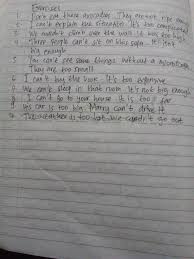 Exercises
1. Don't eat these avocados. They are not ripe enough
2. I can't explain this It's too complicated
3. We couldn't climb over the wall. It was too high
4. Three people can't sit on this sofa. It isn't
big enough
5. You can't see some things without a microscope
They are too small
6. I can't buy the book. It's too expensive
We can't sleep in that room. It's not big enough
I can't go to your house. It is too far
car is too big. can't drive it
The weather is too hot. We couldn't go out